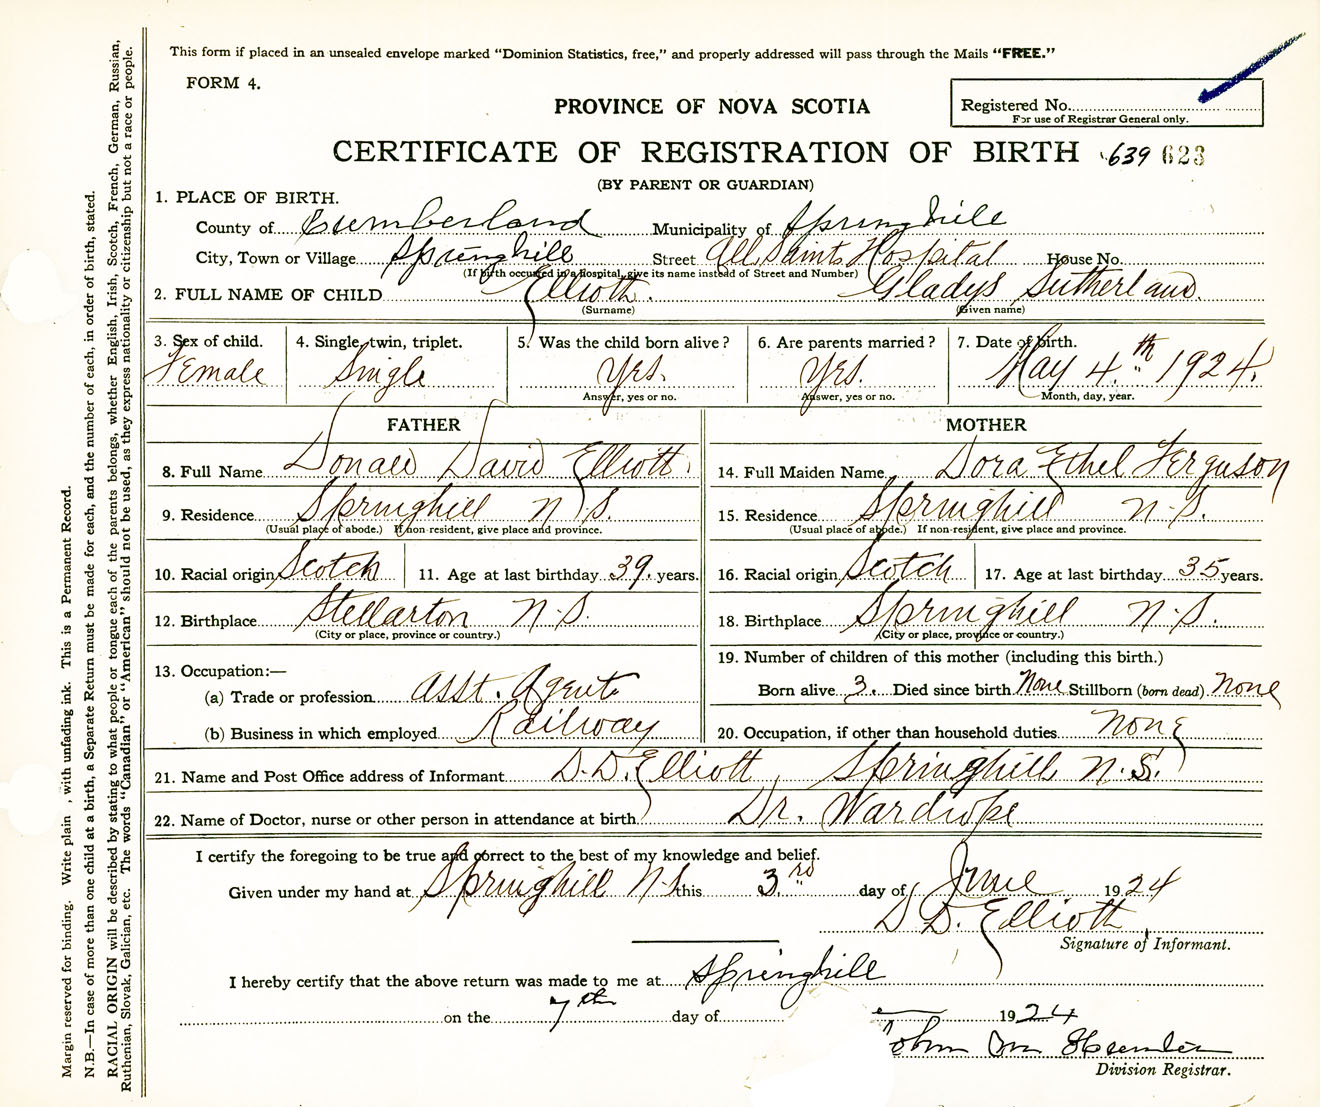 This form if placed in an unsealed envelope marked "Dominion Statistics, free," and properly addressed will pass through the Mails "FREE."
FORM 4.
PROVINCE OF NOVA SCOTIA
Registered No.
For use of Registrar General only.
CERTIFICATE OF REGISTRATION OF BIRTH 639 623
(BY PARENT OR GUARDIAN)
1. PLACE OF BIRTH.
County of Cumberland Municipality of Springhill
City, Town or Village Springhill Street All Saints Hospital House No.
(If birth occurred in a hospital, give its name instead of Street and Number)
2. FULL NAME OF CHILD Elliott. Gladys Sutherland.
(Surname) (Given name)
3. Sex of child. 4. Single, twin, triplet. 5. Was the child born alive? 6. Are parents married? 7. Date of birth.
Female Single Yes. Yes. May 4th 1924.
Answer, yes or no. Answer, yes or no. Month, day, year.
FATHER MOTHER
8. Full Name Donald David Elliott. 14. Full Maiden Name Dora Ethel Ferguson
9. Residence Springhill N.S. 15. Residence Springhill N.S.
(Usual place of abode.) If non-resident, give place and province. (Usual place of abode.) If non-resident, give place and province.
10. Racial origin Scotch 11. Age at last birthday 39. years. 16. Racial origin Scotch 17. Age at last birthday 35 years.
12. Birthplace Stellarton N.S. 18. Birthplace Springhill N.S.
(City or place, province or country.) (City or place, province or country.)
13. Occupation:— 19. Number of children of this mother (including this birth.)
(a) Trade or profession Asst. Agent Born alive 3. Died since birth None Stillborn (born dead) None
(b) Business in which employed Railway 20. Occupation, if other than household duties None
21. Name and Post Office address of Informant D. D. Elliott, Springhill N.S.
22. Name of Doctor, nurse or other person in attendance at birth Dr. Wardrope
I certify the foregoing to be true and correct to the best of my knowledge and belief.
Given under my hand at Springhill N.S. this 3rd day of June 1924
D D. Elliott
Signature of Informant.
I hereby certify that the above return was made to me at Springhill
on the 7th day of 1924
John
Division Registrar.
Margin reserved for binding. Write plain , with unfading ink. This is a Permanent Record.
N.B.—In case of more than one child at a birth, a Separate Return must be made for each, and the number of each, in order of birth, stated.
RACIAL ORIGIN will be described by stating to what people or tongue each of the parents belongs, whether English, Irish, Scotch, French, German, Russian,
Ruthenian, Slovak, Galician, etc. The words "Canadian" or "American" should not be used, as they express nationality or citizenship but not a race or people.